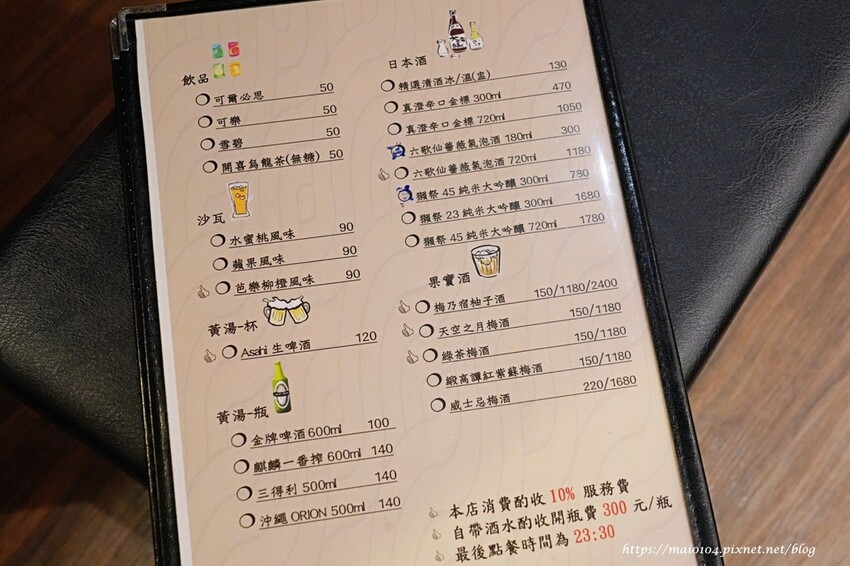 飲品
可爾必思 50
可樂 50
雪碧 50
開喜烏龍茶(無糖) 50
沙瓦
水蜜桃風味 90
蘋果風味 90
芭樂柳橙風味 90
黃湯-杯
Asahi 生啤酒 120
黃湯-瓶
金牌啤酒600ml 100
麒麟一番搾 600ml 140
三得利 500ml 140
沖繩 ORION 500ml 140
日本酒
精選清酒冰/溫(盅) 130
真澄辛口金標 300ml 470
真澄辛口金標 720ml 1050
六歌仙薔薇氣泡酒 180ml 300
六歌仙薔薇氣泡酒 720ml 1180
獺祭 45 純米大吟釀 300ml 780
獺祭 23 純米大吟釀 300ml 1680
獺祭 45 純米大吟釀 720ml 1780
果實酒
梅乃宿柚子酒 150/1180/2400
天空之月梅酒 150/1180
綠茶梅酒 150/1180
緞高譚紅紫蘇梅酒 150/1180
威士忌梅酒 220/1680
本店消費酌收 10% 服務費
自帶酒水酌收開瓶費 300 元/瓶
最後點餐時間為 23:30
https://mai0104.pixnet.net/blog